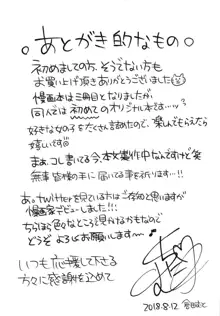 。あとがき的なもの。
初めましての方、そうでない方も
お買い上げ頂きありがとうございました
漫画本は三冊目となりましたが、
同人では初めてのオリジナル本です…ッ
好きな女の子をたくさん詰めたので、楽しんでもらえたら
嬉しいです
まぁ、コレ書いてる今、本文製作中なんですけど笑
無事皆様の手に届いてる事を祈ります…!!
あ、twitterを見ている方はご存知と思いますが
漫画家デビューしました!!!
ちらほら色々なところで見かけるかもなので
どうぞよろしくお願いします〜♪
いつも応援して下さる
方々に感謝を込めて
2018.8.12